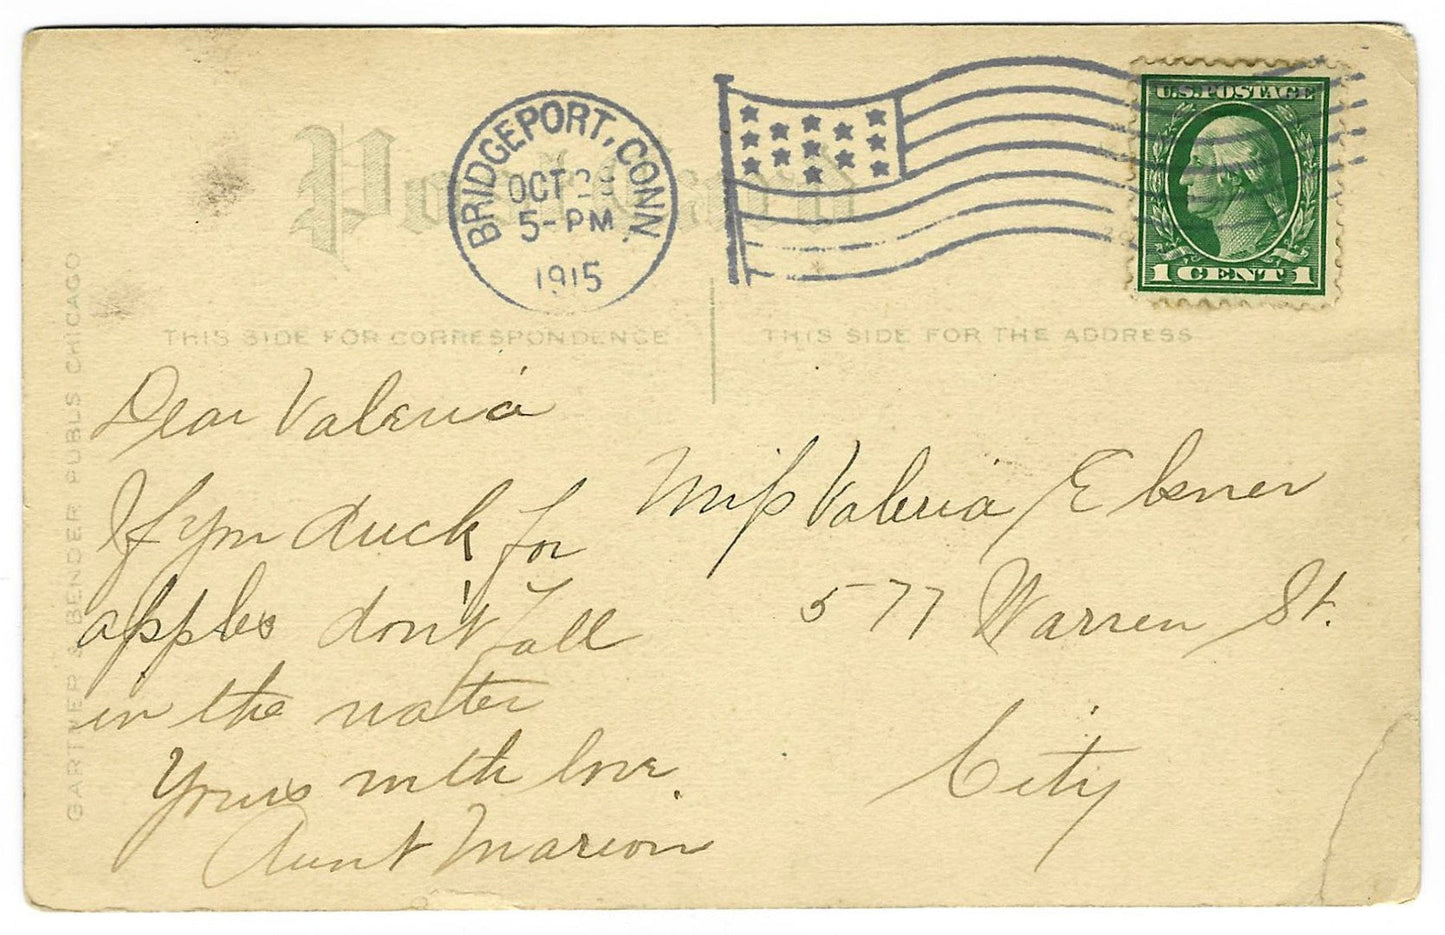 Post Card
BRIDGEPORT, CONN.
OCT 2
5-PM
1915
U.S. POSTAGE
1 CENT 1
THIS SIDE FOR CORRESPONDENCE
THIS SIDE FOR THE ADDRESS
GARTNER & BENDER PUBLS CHICAGO
Dear Valeria
If you duck for
apples don't fall
in the water
Yours with love.
Aunt Marion
Miss Valeria
577 Warren St.
City